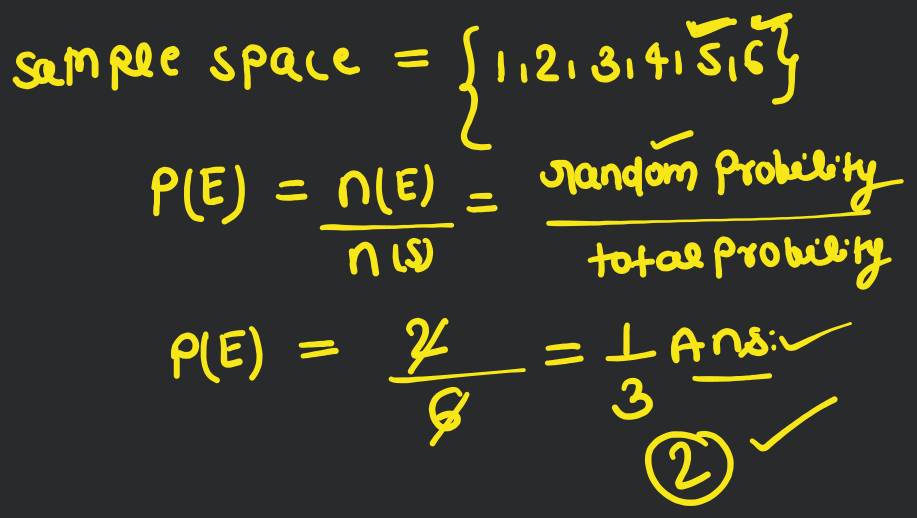 sample space = {1,2,3,4,5,6}
P(E) = n(E)/n(s) = random Probility/total Probility
P(E) = 2/6 = 1/3 Ans:
2